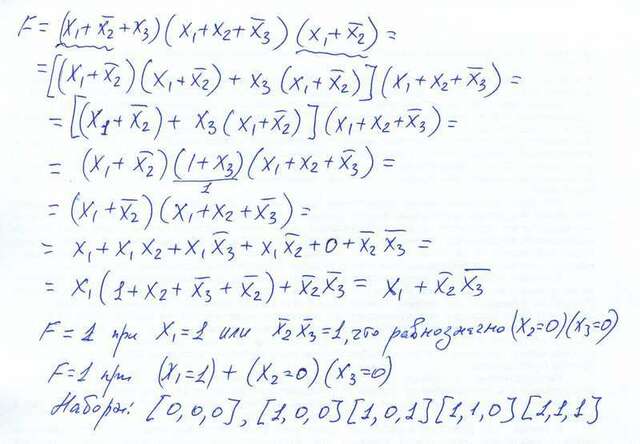 F = (x₁ + x̅₂ + x₃)(x₁ + x₂ + x̅₃)(x₁ + x̅₂) =
= [(x₁ + x̅₂)(x₁ + x̅₂) + x₃(x₁ + x̅₂)](x₁ + x₂ + x̅₃) =
= [(x₁ + x̅₂) + x₃(x₁ + x̅₂)](x₁ + x₂ + x̅₃) =
= (x₁ + x̅₂)(1 + x₃)(x₁ + x₂ + x̅₃) =
1
= (x₁ + x̅₂)(x₁ + x₂ + x̅₃) =
= x₁ + x₁x₂ + x₁x̅₃ + x₁x̅₂ + 0 + x̅₂x̅₃ =
= x₁(1 + x₂ + x̅₃ + x̅₂) + x̅₂x̅₃ = x₁ + x̅₂x̅₃
F = 1 при x₁=1 или x̅₂x̅₃=1, что равнозначно (x₂=0)(x₃=0)
F=1 при (x₁=1) + (x₂=0)(x₃=0)
Наборы: [0,0,0], [1,0,0][1,0,1][1,1,0][1,1,1]